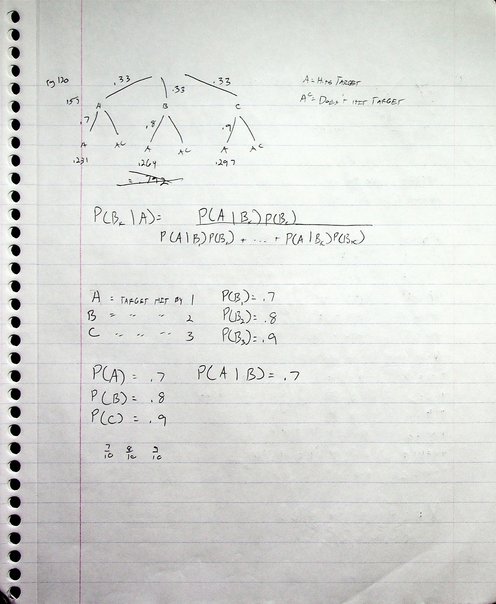 pg 130
.33 .33 .33
A = Hits Target
A^c = Doesn't hit Target
157
A B C
.7 .8 .9
A A^c A A^c A A^c
.231 .264 .297
= .792
P(B_k | A) = P(A | B_k) P(B_k)
P(A | B) P(B_1) + ... + P(A | B_k) P(B_k)
A = Target hit by 1 P(B_1) = .7
B = " " " 2 P(B_2) = .8
C " " " 3 P(B_3) = .9
P(A) = .7 P(A | B) = .7
P(B) = .8
P(C) = .9
7/10 8/10 9/10